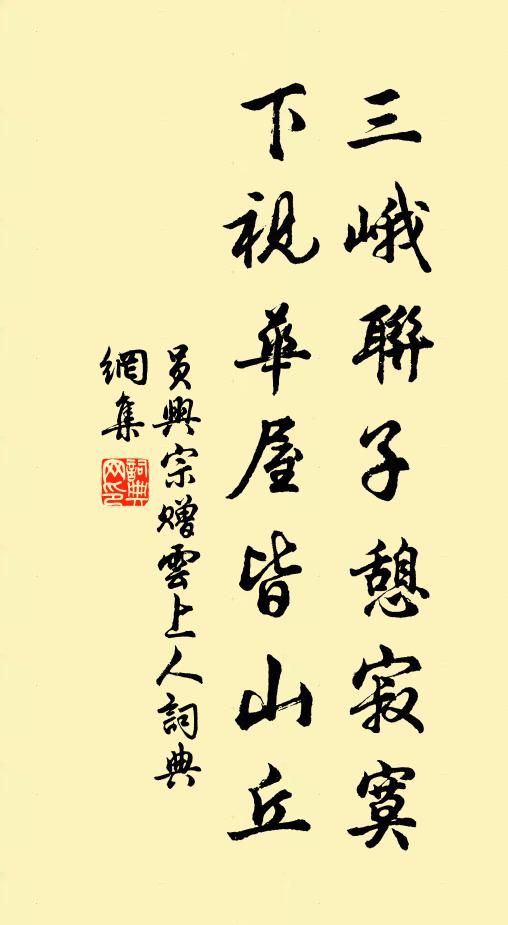 三峨聯子憩寂寞
下視華屋皆山丘
員興宗贈雲上人詞典
網集
詞典網印